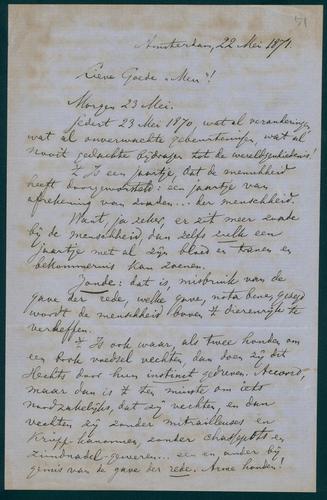 51
Amsterdam, 22 Mei 1871.
Lieve Goede "Men"!
Morgen 23 Mei.
Sedert 23 Mei 1870, wat al veranderingen,
wat al onverwachte gebeurtenissen, wat al
nooit gedachte bijdragen tot de wereldgeschiedenis!
't Is een jaartje, dat de menschheid
heeft doorgeworsteld: een jaartje van
afrekening van zonden... der menschheid.
Want, ja zeker, er zit meer zonde
bij de menschheid, dan zelfs zulk een
jaartje met al zijn bloed en tranen en
bekommernis kan zoenen.
Zonde: dat is, misbruik van de
gave der rede, welke gave, nota bene, gezegd
wordt de menschheid boven 't dierenrijk te
verheffen.
't Is ook waar, als twee honden om
een brok voedsel vechten dan doen zij dit
slechts door hun instinct gedreven. Accoord,
maar dan is 't ten minste om iets
noodzakelijks, dat zij vechten, en dan
vechten zij zonder mitrailleuses en
Krupp-kanonnen, zonder chassepots en
zündnadel-geweren... een en ander bij
gemis van de gave der rede. Arme honden!